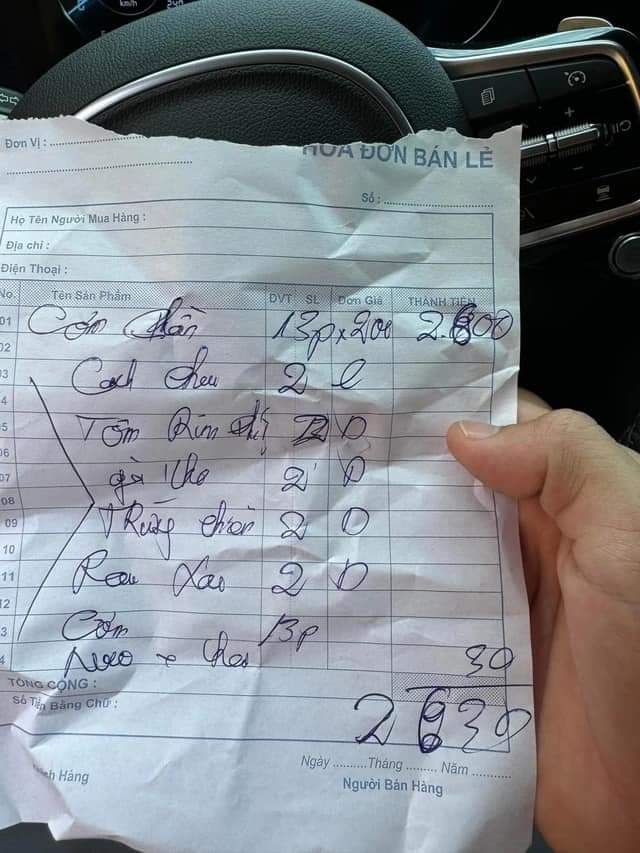 km/h
HÓA ĐƠN BÁN LẺ
Đơn Vị :
Số :
Họ Tên Người Mua Hàng :
Địa chỉ :
Điện Thoại :
No. Tên Sản Phẩm ĐVT SL Đơn Giá THÀNH TIỀN
01 Cơm 13p x 200 2.600
02
03 Canh 2
4 
05 Tôm Rim 2 D
06
07 gà kho 2 D
08
09 Trứng chiên 2 D
10
11 Rau Xào 2 D
12
3 Cơm 13p
4 30
TỔNG CỘNG :
Số Tiền Bằng Chữ : 2630
Ngày Tháng Năm
Hàng Người Bán Hàng